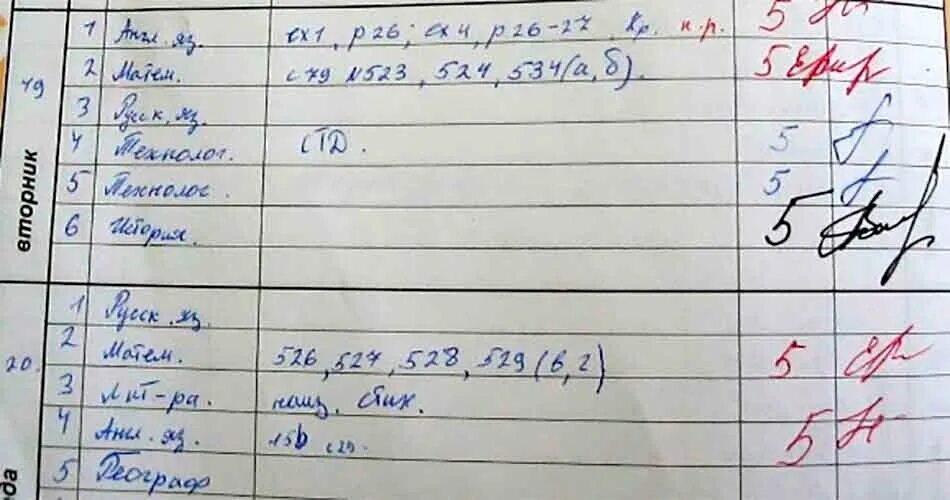 19
вторник
1 Англ. яз. ex1, p26; ex4, p26-27 Кр. н.р. 5
2 Матем. с79 N523, 524, 534(а,б). 5
3 Русск. яз.
4 Технолог. СТД. 5
5 Технолог. 5
6 История. 5
20.
1 Русск. яз.
2 Матем. 526, 527, 528, 529(в,г) 5
3 Лит-ра. наиз. стих.
4 Англ. яз. 15b с29. 5
5 Географ